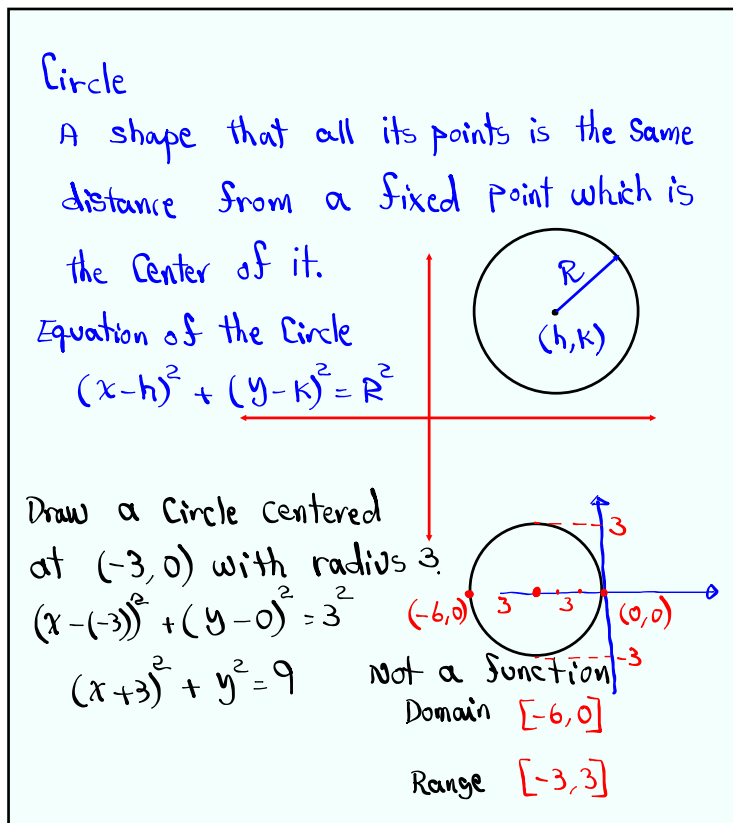 Circle
A shape that all its points is the same
distance from a fixed point which is
the Center of it.
R
(h,k)
Equation of the Circle
(x-h)² + (y-k)² = R²
Draw a Circle centered
at (-3,0) with radius 3.
(x-(-3))² + (y-0)² = 3²
(x+3)² + y² = 9
3
(-6,0) 3 3 (0,0)
-3
Not a function
Domain [-6,0]
Range [-3,3]